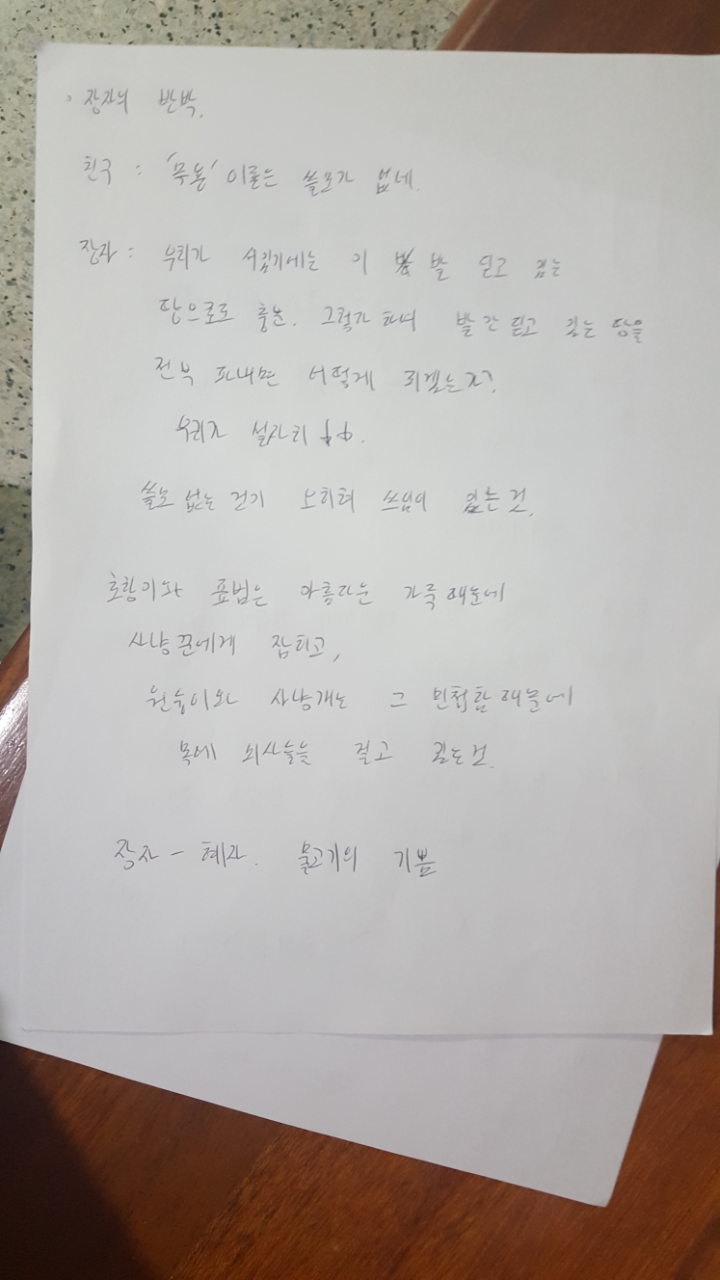 · 장자의 반박.
친구 : '무용' 이론은 쓸모가 없네.
장자 : 우리가 서있기에는 이 발 딛고 있는
땅으로도 충분. 그렇다 하여 발만 딛고 있는 땅을
전부 파내면 어떻게 되겠는가?
우리가 설자리
쓸모 없는 것이 오히려 쓰임이 있는 것.
호랑이와 표범은 아름다운 가죽 때문에
사냥꾼에게 잡히고,
원숭이와 사냥개는 그 민첩함 때문에
목에 쇠사슬을 걸고 있는 것.
장자 - 혜자. 물고기의 기쁨